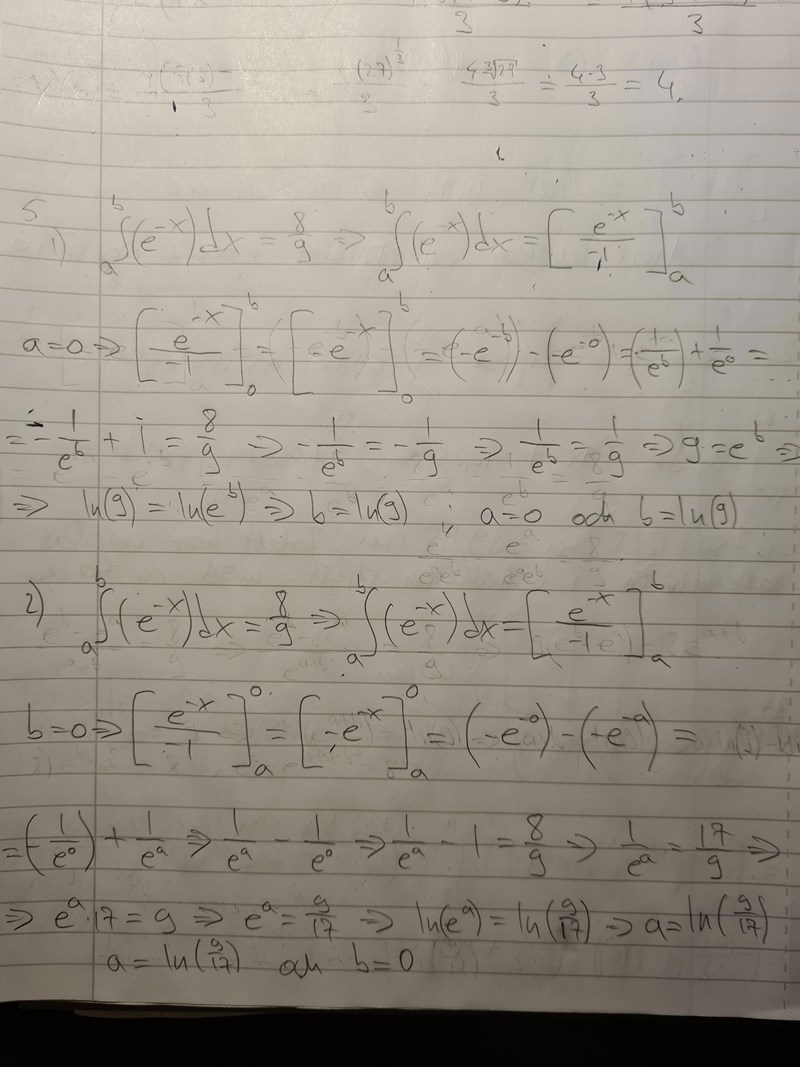 3 3
(27)^{1/3} \frac{4\sqrt[3]{27}}{3} = \frac{4·3}{3} = 4.
5
1) \int_a^b (e^{-x}) dx = \frac{8}{9} ⇒ \int_a^b (e^{-x}) dx = [\frac{e^{-x}}{-1}]_a^b
a=0 ⇒ [\frac{e^{-x}}{-1}]_0^b = [-e^{-x}]_0^b = (-e^{-b}) - (-e^{-0}) = (-\frac{1}{e^b}) + \frac{1}{e^0} =
= -\frac{1}{e^b} + 1 = \frac{8}{9} ⇒ -\frac{1}{e^b} = -\frac{1}{9} ⇒ \frac{1}{e^b} = \frac{1}{9} ⇒ 9 = e^b ⇒
⇒ ln(9) = ln(e^b) ⇒ b = ln(9) ; a=0 och b=ln(9)
2) \int_a^b (e^{-x}) dx = \frac{8}{9} ⇒ \int_a^b (e^{-x}) dx = [\frac{e^{-x}}{-1}]_a^b
b=0 ⇒ [\frac{e^{-x}}{-1}]_a^0 = [-e^{-x}]_a^0 = (-e^{-0}) - (-e^{-a}) =
= (-\frac{1}{e^0}) + \frac{1}{e^a} ⇒ \frac{1}{e^a} - \frac{1}{e^0} ⇒ \frac{1}{e^a} - 1 = \frac{8}{9} ⇒ \frac{1}{e^a} = \frac{17}{9} ⇒
⇒ e^a·17 = 9 ⇒ e^a = \frac{9}{17} ⇒ ln(e^a) = ln(\frac{9}{17}) ⇒ a = ln(\frac{9}{17})
a = ln(\frac{9}{17}) och b = 0